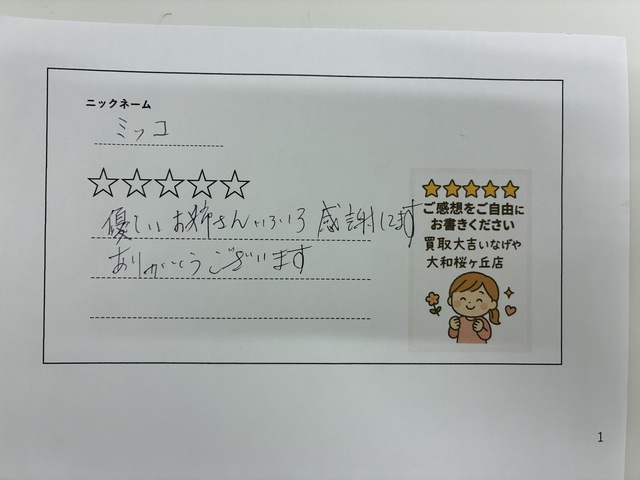 ニックネーム
ミッコ
☆☆☆☆☆
優しいお姉さんいろいろ感謝してます
ありがとうございます
★★★★★
ご感想をご自由に
お書きください
買取大吉いなげや
大和桜ヶ丘店
1